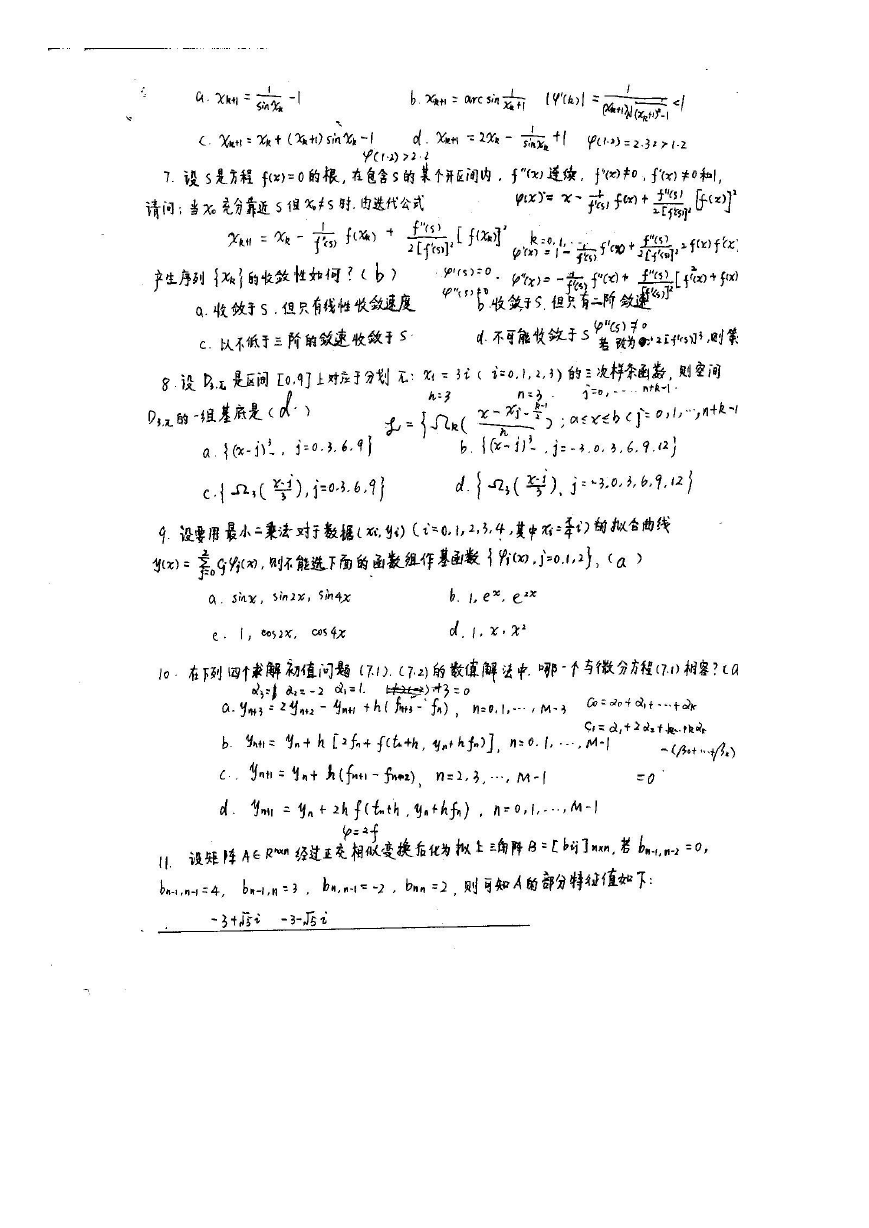 a. x_{k+1} = 1/sin x_k - 1    b. x_{k+1} = arc sin 1/(x_k+1)    |φ'(k)| = 1/((x_k+1)√((x_k+1)²-1)) < 1
c. x_{k+1} = x_k + (x_k+1) sin x_k - 1    d. x_{k+1} = 2x_k - 1/sin x_k + 1    φ(1.2) = 2.32 > 1.2
φ(1.2) > 2.2
7. 设 S 是方程 f(x)=0 的根, 在包含 S 的某个开区间内, f''(x) 连续, f''(x)≠0, f'(x)≠0 和1,
请问: 当 x₀ 充分靠近 S 但 x₀≠S 时, 由迭代公式    φ(x) = x - 1/f'(s) f(x) + f''(s)/2[f'(s)]³ [f(x)]²
x_{k+1} = x_k - 1/f'(s) f(x_k) + f''(s)/2[f'(s)]² [f(x_k)]²    k=0,1,...
φ'(x) = 1 - 1/f'(s) f'(x) + f''(s)/2[f'(s)]² 2f(x)f'(x)
产生序列 {x_k} 的收敛性如何? ( b )    φ'(s)=0    φ''(x) = -1/f'(s) f''(x) + f''(s)/[f'(s)]² [f'²(x)+f(x)
φ''(s)≠0
a. 收敛于 S, 但只有线性收敛速度    b. 收敛于 S, 但只有二阶敛速
φ''(s)≠0
c. 以不低于三阶的敛速收敛于 S    d. 不可能收敛于 S    若改为 2[f'(s)]³, 则
8. 设 D₃,π 是区间 [0,9] 上对应于分划 π: x_i = 3i ( i=0,1,2,3 ) 的三次样条函数, 则空间
h=3    n=3    j=0, ... n+k-1
D₃,π 的一组基底是 ( d )    = {Ω_k( (x - x_j - (k-1)/2)/h ); a≤x≤b (j=0,1,...,n+k-1
a. {(x-j)³₋, j=0.3.6.9}    b. {(x-j)³₋, j=-3.0.3.6.9.12}
c. {Ω₃((x-j)/3), j=0.3.6.9}    d. {Ω₃((x-j)/3), j=-3.0,3,6,9,12}
9. 设要用最小二乘法对于数据 (x_i, y_i) ( i=0,1,2,3,4, 其中 x_i=π/4 i) 的拟合曲线
y(x) = Σ_{j=0}^{2} C_jφ_j(x), 则不能选下面的函数组作基函数 {φ_j(x), j=0,1,2}, ( a )
a. sin x, sin2x, sin4x    b. 1, e^x, e^{2x}
c. 1, cos2x, cos4x    d. 1, x, x²
10. 在下列四个求解初值问题 (7.1), (7.2) 的数值解法中, 哪一个与微分方程(7.1) 相容? (a
α₃=1 α₂=-2 α₁=1.    +3=0
a. y_{n+3} = 2y_{n+2} - y_{n+1} + h( f_{n+3} - f_n), n=0,1,..., M-3    C₀=α₀+α₁+...+α_k
C₁=α₁+2α₂+...+kα_k
b. y_{n+1} = y_n + h [2f_n + f(t_n+h, y_n+hf_n)], n=0.1,..., M-1    -(β₀+...+β_k)
c. y_{n+1} = y_n + h(f_{n+1} - f_{n-2}), n=2,3,..., M-1    =0
d. y_{n+1} = y_n + 2h f(t_n+h, y_n+hf_n), n=0,1,..., M-1
φ=2f
11. 设矩阵 A∈R^{n×n} 经过正交相似变换后化为拟上三角阵 B=[b_{ij}]_{n×n}, 若 b_{n-1,n-2}=0,
b_{n-1,n-1}=4, b_{n-1,n}=3, b_{n,n-1}=-2, b_{nn}=2, 则可知 A 的部分特征值如下:
-3+√5 i    -3-√5 i